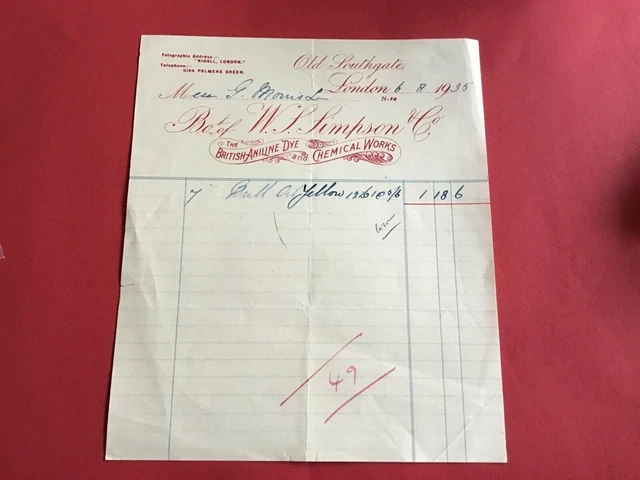 Telegraphic Address:-
"SIGALL, LONDON."
Telephone:-
0196 PALMERS GREEN.
Old Southgate.
London 6 8 1935
N.14
Mess G. Morris
Bot. of W. S. Simpson & Co
THE BRITISH ANILINE DYE and CHEMICAL WORKS
7 Yellow 1 18 6
49